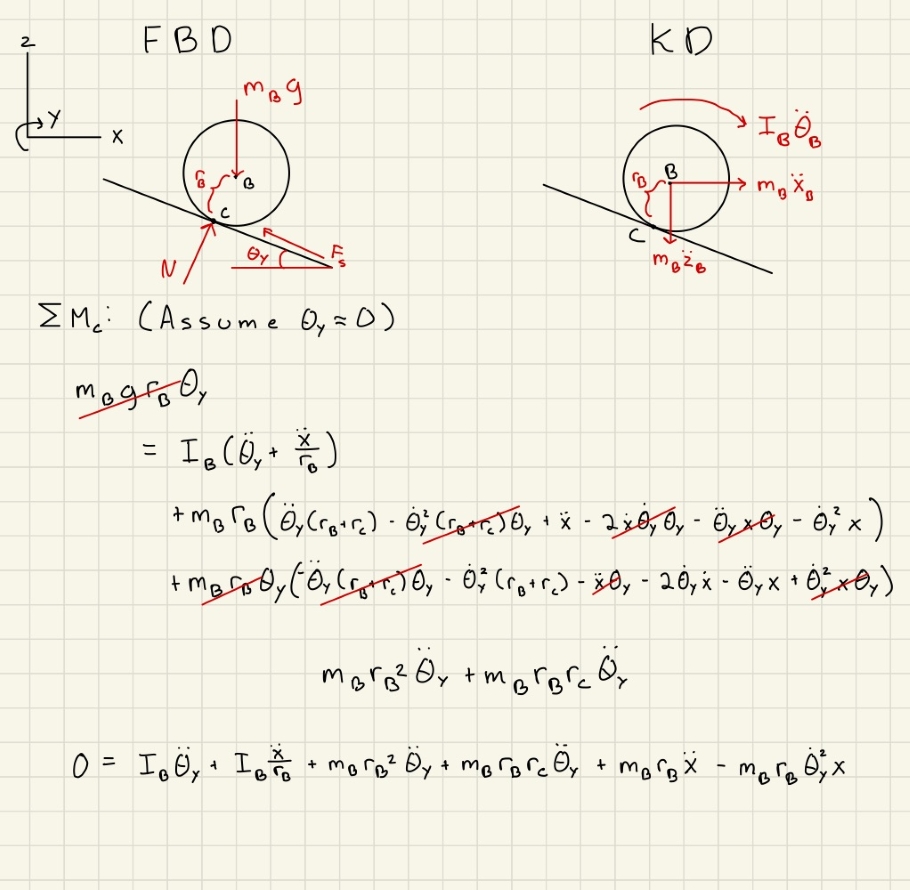 FBD
KD
z
y
x
m_B g
r_B
B
C
N
θ_y
F_s
I_B θ̈_B
r_B
B
m_B ẍ_B
C
m_B z̈_B
ΣM_c: (Assume θ_y ≈ 0)
m_B g r_B θ_y
= I_B (θ̈_y + ẍ/r_B)
+ m_B r_B (θ̈_y (r_B + r_c) - θ̇_y² (r_B + r_c) θ_y + ẍ - 2ẋθ̇_y θ_y - θ̈_y x θ_y - θ̇_y² x)
+ m_B r_B θ_y (-θ̈_y (r_B + r_c) θ_y - θ̇_y² (r_B + r_c) - ẍθ_y - 2θ̇_y ẋ - θ̈_y x + θ̇_y² x θ_y)
m_B r_B² θ̈_y + m_B r_B r_c θ̈_y
0 = I_B θ̈_y + I_B ẍ/r_B + m_B r_B² θ̈_y + m_B r_B r_c θ̈_y + m_B r_B ẍ - m_B r_B θ̇_y² x